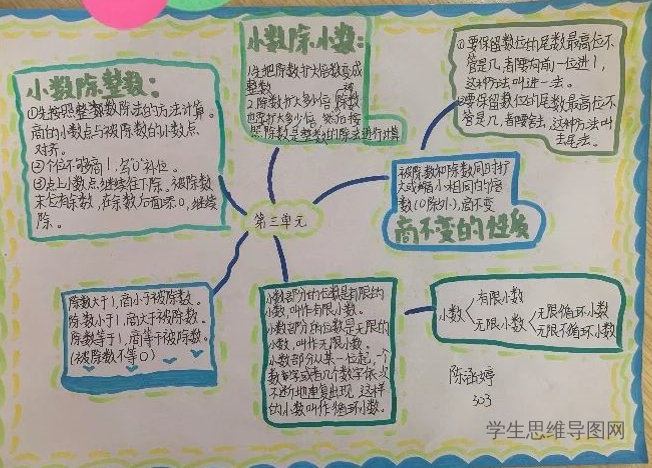 小数除整数：
①先按照整数除法的方法计算。
商的小数点与被除数的小数点
对齐。
②个位不够商1，写"0"补位。
③点上小数点继续往下除。被除数
末位有余数，在余数后面添0，继续
除。
小数除小数：
1.先把除数扩大倍数变成
整数
2.除数扩大多少倍，被除数
也扩大多少倍。然后按
照除数是整数的除法进行计算
①要保留数位的尾数最高位不
管是几，都要向前一位进1，
这种方法叫进一法。
②要保留数位的尾数最高位不
管是几，都要舍去，这种方法叫
去尾法。
被除数和除数同时扩
大或缩小相同的倍
数(0除外)，商不变
商不变的性质
第三单元
除数大于1，商小于被除数。
除数小于1，商大于被除数。
除数等于1，商等于被除数。
(被除数不等0)
小数部分的位数是有限的
小数，叫作有限小数。
小数部分的位数是无限的
小数，叫作无限小数。
小数部分从某一位起，一个
数字或者几个数字依次
不断地重复出现，这样
的小数叫作循环小数。
小数
有限小数
无限小数
无限循环小数
无限不循环小数
陈涵婷
303
学生思维导图网